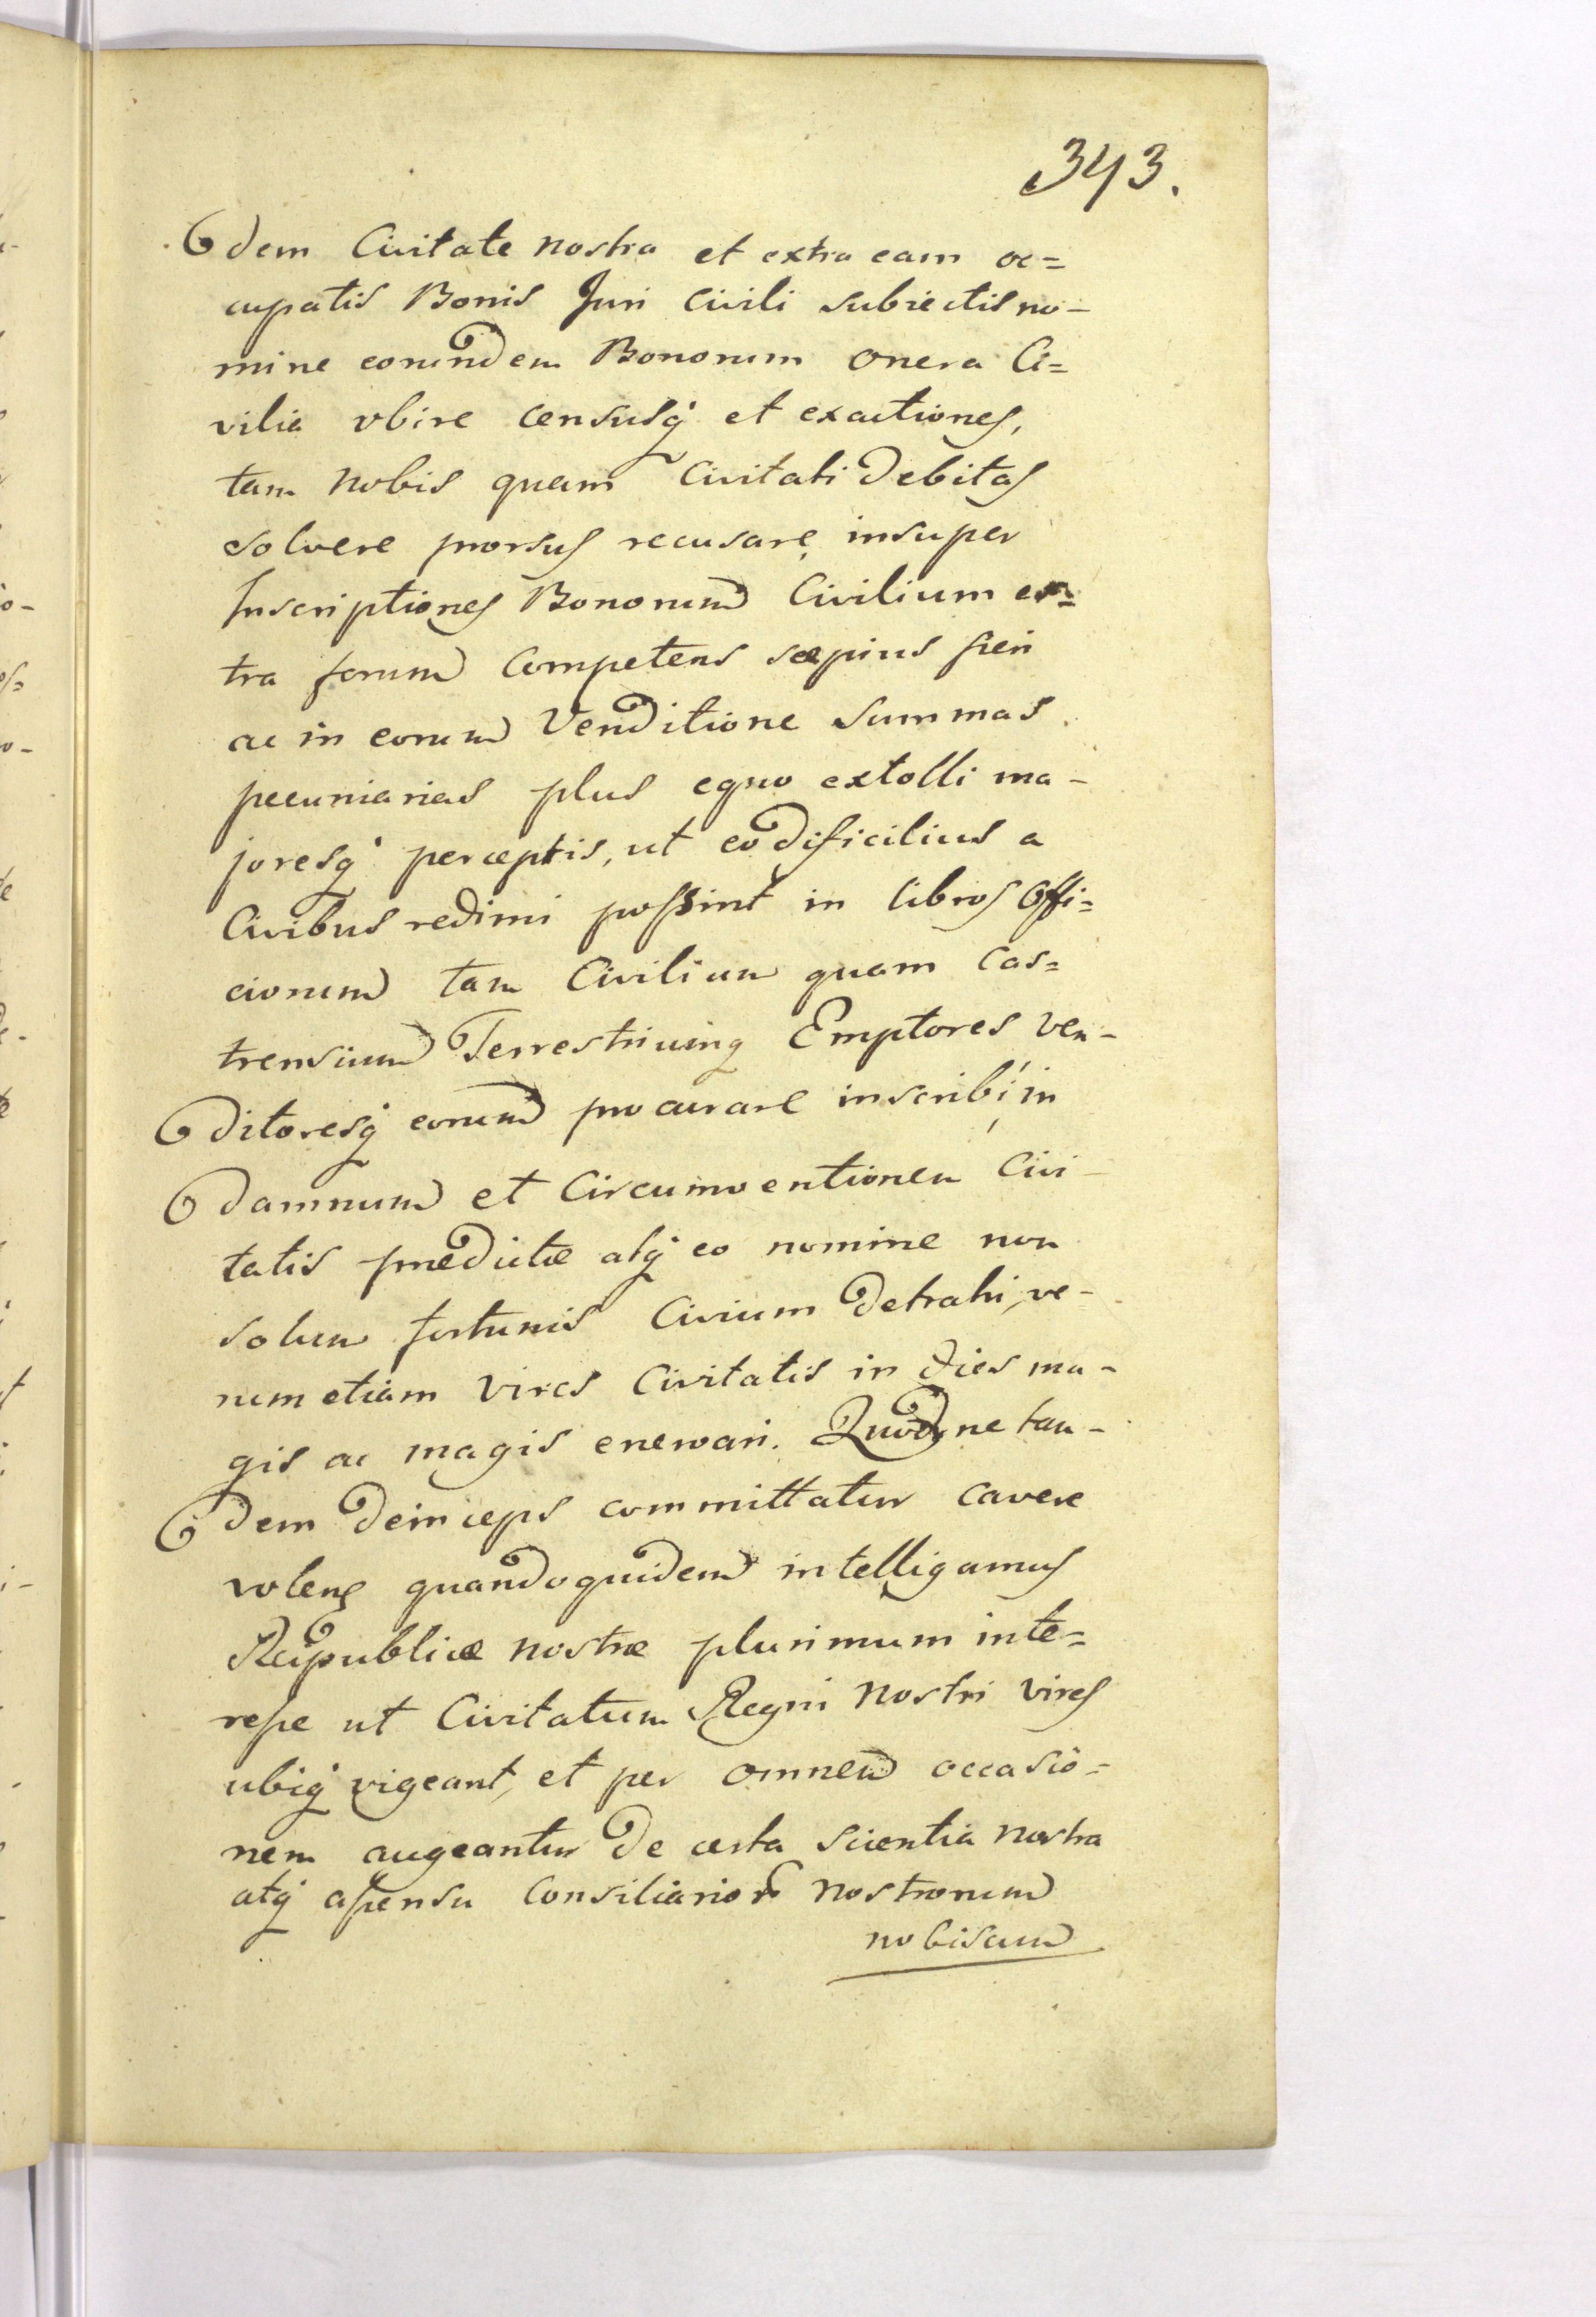 343.
dem Civitate nostra et extra eam oc=
cupatis Bonis Juri Civili subiectis no-
mine eorundem Bonorum onera Ci=
vilia obire censusq' et exactiones,
tam nobis quam Civitati debitas
solvere prorsus recusare, insuper
Inscriptiones Bonorum Civilium ex=
tra forum Competens sæpius fieri
ac in eorum Venditione summas
pecuniarias plus equo extolli ma-
joresq' perceptis, ut eo dificilius a
Civibus redimi possint in libros Offi=
ciorum tam Civilium quam Cas=
trensium Terrestriumq Emptores ven-
ditoresq' eorum procurare inscribi, in
damnum et Circumventionem Civi-
tatis prædictæ atq' eo nomine non
solum fortunis Civium detrahi, ve-
rum etiam vires Civitatis in dies ma-
gis ac magis enervari. Quod, ne tan-
dem deinceps committatur cavere
volens quandoquidem intelligamus
Reipublicæ nostræ plurimum inte=
resse ut Civitatum Regni Nostri vires
ubiq' vigeant, et per omnem occasio=
nem augeantur de certa scientia nostra
atq' assensu Consiliarior̃ nostrorum
nobiscum